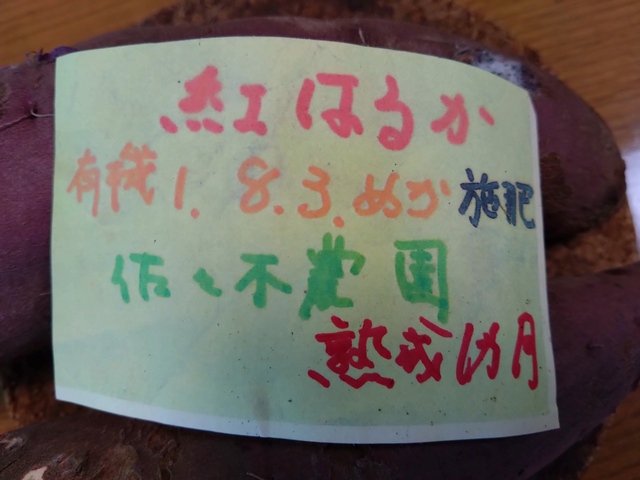 紅はるか
有機1.8.3.めか施肥
佐々木農園
熟成1カ月